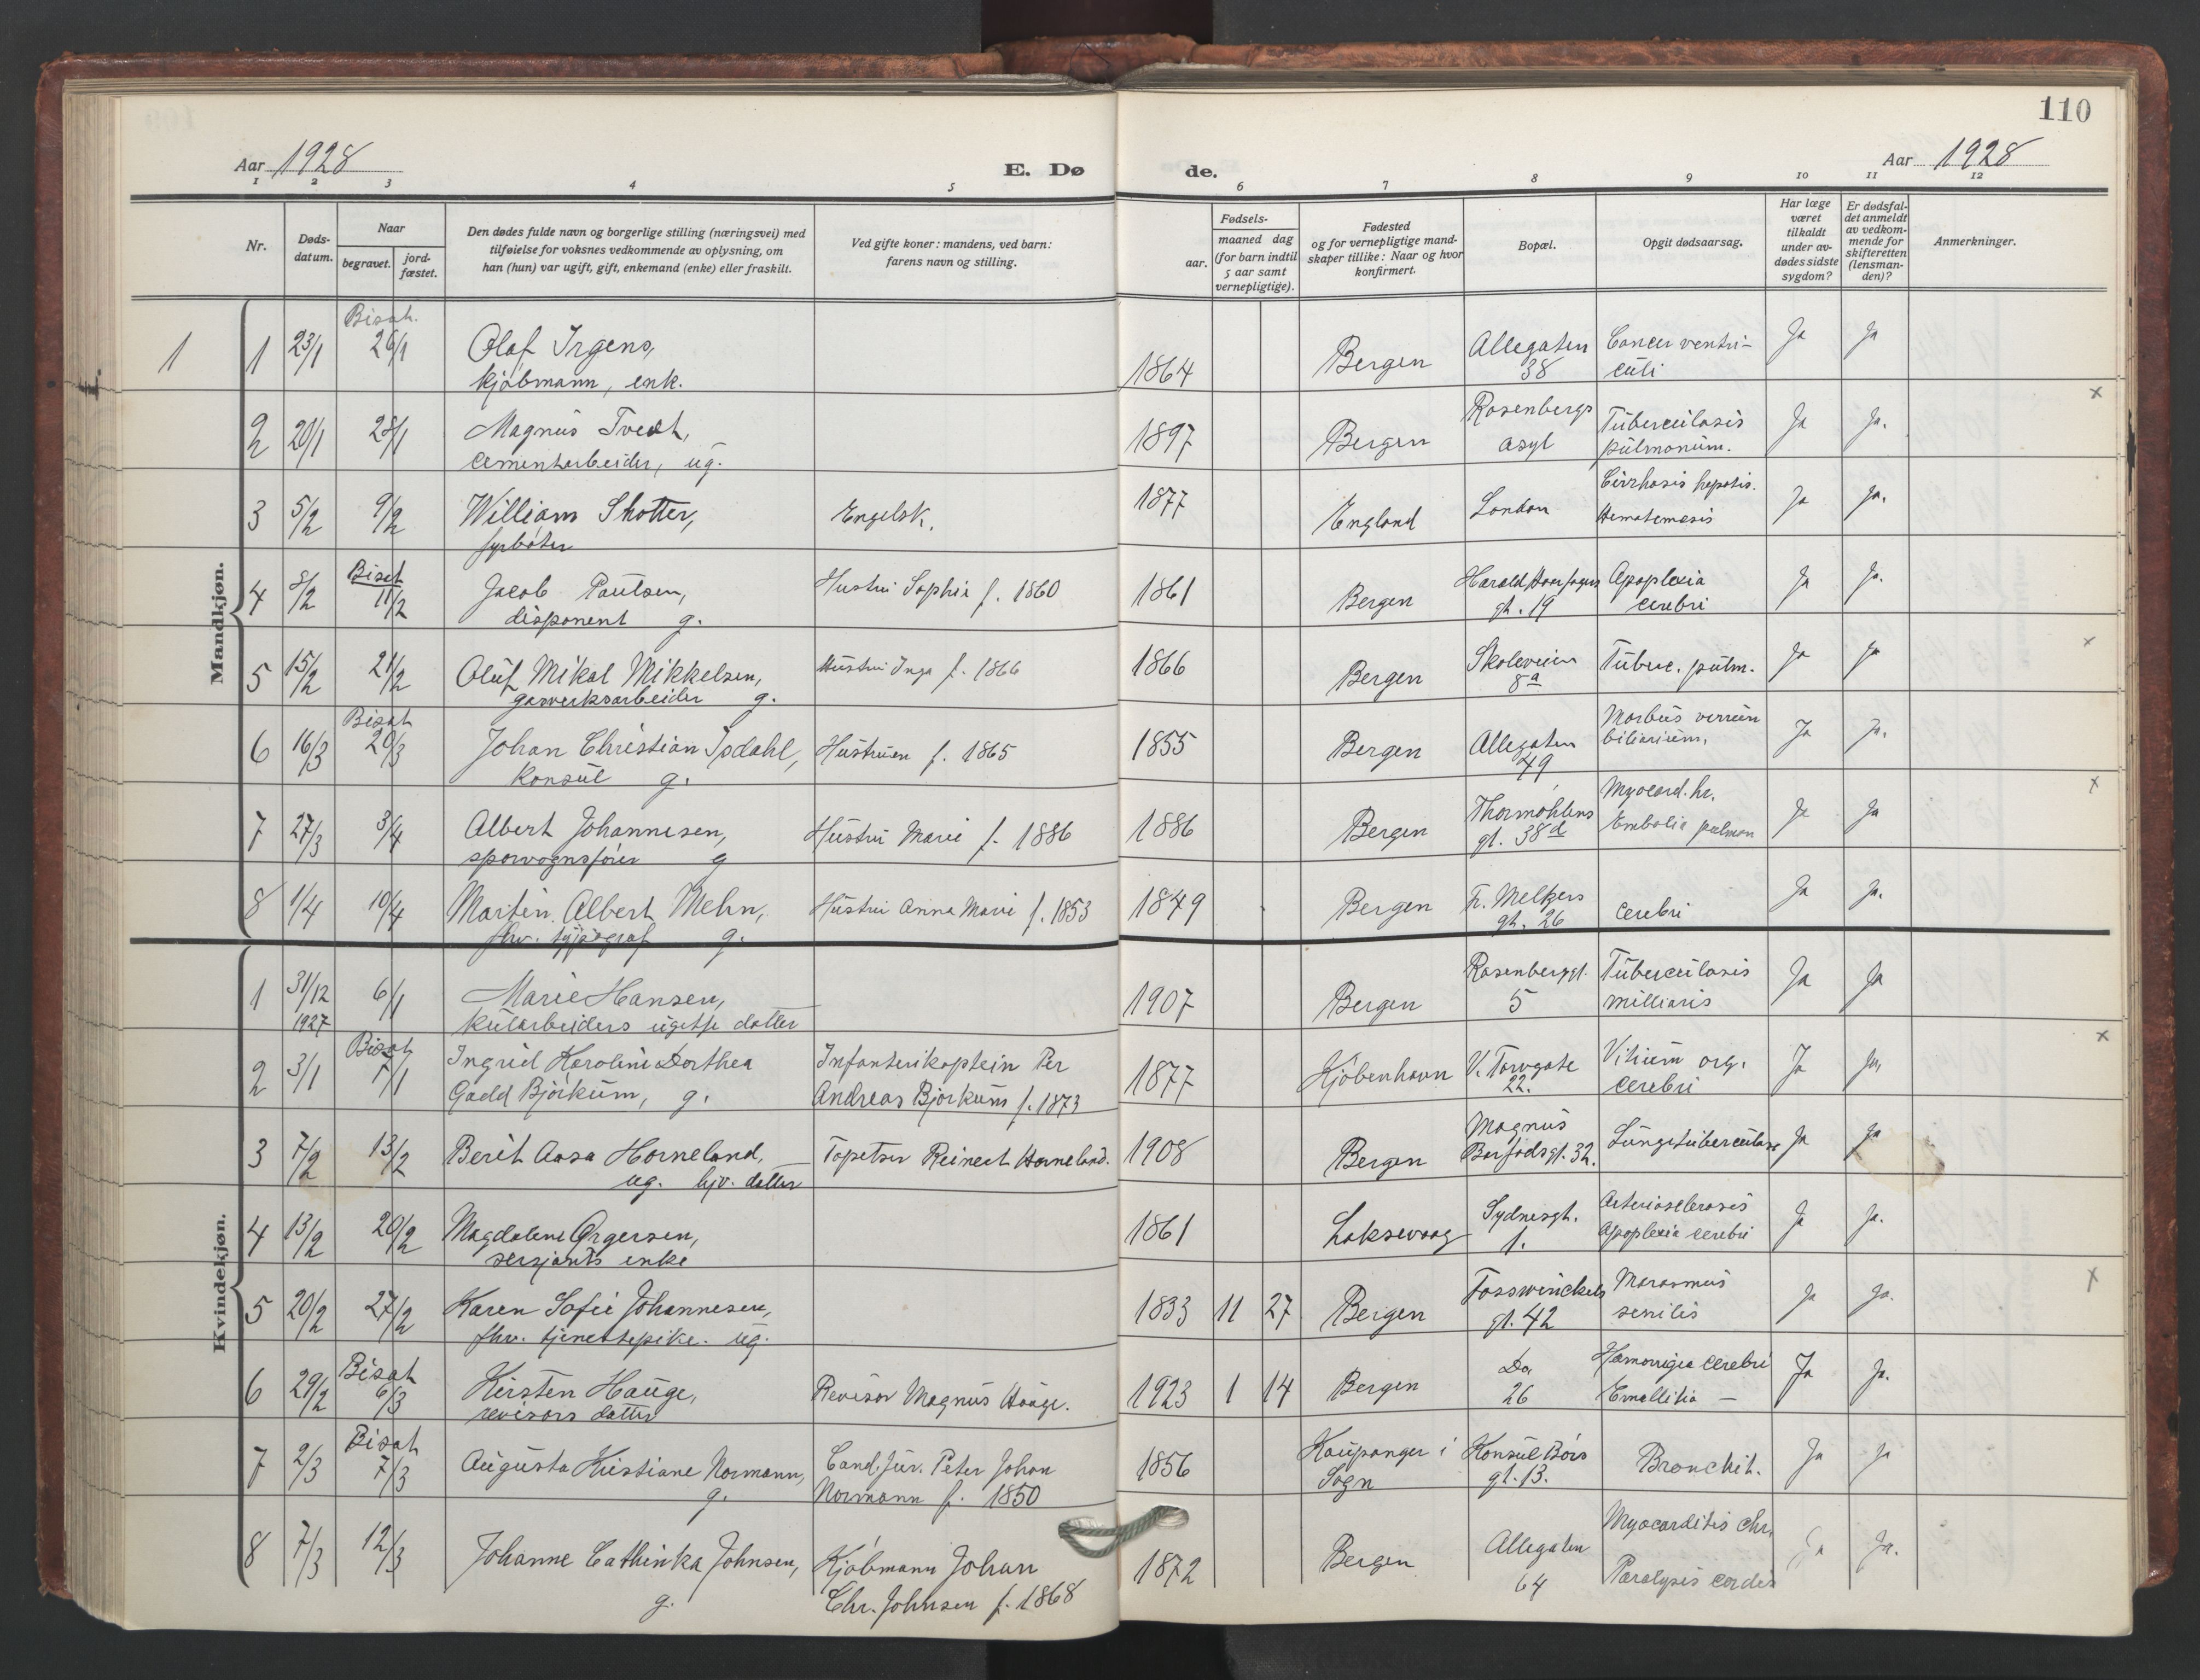 110
Aar 1928
E. Dø
de.
Aar 1928
1 2 3 4 5 6 7 8 9 10 11 12
Nr.
Døds-
datum.
Naar
begravet.
jord-
fæstet.
Den dødes fulde navn og borgerlige stilling (næringsvei) med
tilføielse for voksnes vedkommende av oplysning, om
han (hun) var ugift, gift, enkemand (enke) eller fraskilt.
Ved gifte koner: mandens, ved barn:
farens navn og stilling.
Fødsels-
aar.
maaned dag
(for barn indtil
5 aar samt
vernepligtige).
Fødested
og for vernepligtige mand-
skaper tillike: Naar og hvor
konfirmert.
Bopæl.
Opgit dødsaarsag.
Har læge
været
tilkaldt
under av-
dødes sidste
sygdom?
Er dødsfal-
det anmeldt
av vedkom-
mende for
skifteretten
(lensman-
den)?
Anmerkninger.
Mandkjøn.
1
1 23/1 Bisat. 26/1 Olaf Irgens, 1864 Bergen Allegaten Cancer ventri- Ja Ja
kjøbmann, enk. 38 culi
2 20/1 28/1 Magnus Tvedt, 1897 Bergen Rosenbergs Tuberculosis Ja Ja.
cementarbeider, ug. asyl pulmonum.
3 5/2 9/2 William Shotter, Engelsk. 1877 England London Cirrhosis hepatis. Ja Ja.
fyrbøter Hematemesis
4 8/2 Bisat 11/2 Jacob Paulsen, Hustru Sophie f. 1860 1861 Bergen Harald Haarfagers Apoplexia Ja Ja.
disponent g. gt. 19 cerebri
5 15/2 21/2 Oluf Mikal Mikkelsen, Hustru Inga f. 1866 1866 Bergen Skoleveien Tuberc. pulm. Ja Ja
gasverksarbeider g. 8a
6 16/3 Bisat 20/3 Johan Christian Isdahl, Hustruen f. 1865 1855 Bergen Allegaten Morbus Ja Ja.
Konsul g. 49 biliarium.
7 27/3 3/4 Albert Johannesen, Hustru Marie f. 1886 1886 Bergen Thormøhlens Myocard. kr. Ja Ja
sporvognsfører g gt. 38d Embolia pulmon
8 1/4 10/4 Martin Albert Mehn, Hustru Anna Marie f. 1853 1849 Bergen Fr. Meltzers cerebri Ja Ja.
fhv. typograf g. gt. 26
Kvindekjøn.
1 31/12 1927 6/1 Marie Hansen, 1907 Bergen Rosenberggt. Tuberculosis Ja Ja
kularbeiders ugifte datter 5 milliaris
2 3/1 Bisat 7/1 Ingrid Karoline Dorthea Infanterikaptein Per 1877 Kjøbenhavn V. Torvgate Vitium org. Ja Ja,
Gadd Bjørkum, g. Andreas Bjørkum f. 1873 22. cerebri
3 7/2 13/2 Berit Aasa Horneland, Tapetser Reinert Horneland. 1908 Bergen Magnus Lungetuberculose Ja Ja
ug. hjv. datter Barfodsgt. 32.
4 13/2 20/2 Magdalene Ørgersen, 1861 Laksevaag Sydnesgt. Arteriosclerosis Ja Ja.
sersjants enke 1. Apoplexia cerebri
5 20/2 27/2 Karen Sofie Johannesen, 1833 11 27 Bergen Fosswinckels Marasmus Ja Ja.
fhv. tjenestepike. ug. gt. 42 senilis
6 29/2 Bisat 6/3 Kirsten Hauge, Revisor Magnus Hauge. 1923 1 14 Bergen Do. Hæmorrigia cerebri Ja Ja.
revisors datter 26 Emollitio —
7 2/3 Bisat 7/3 Augusta Kristiane Normann, Cand. jur. Peter Johan 1856 Kaupanger i Konsul Børs Bronchit. Ja Ja
g. Normann f. 1850 Sogn gt. 13.
8 7/3 12/3 Johanne Cathinka Johnsen, Kjøbmann Johan 1872 Bergen Allegaten Myocarditis chr. Ja Ja.
g. Chr. Johnsen f. 1868 64 Paralysis cordis